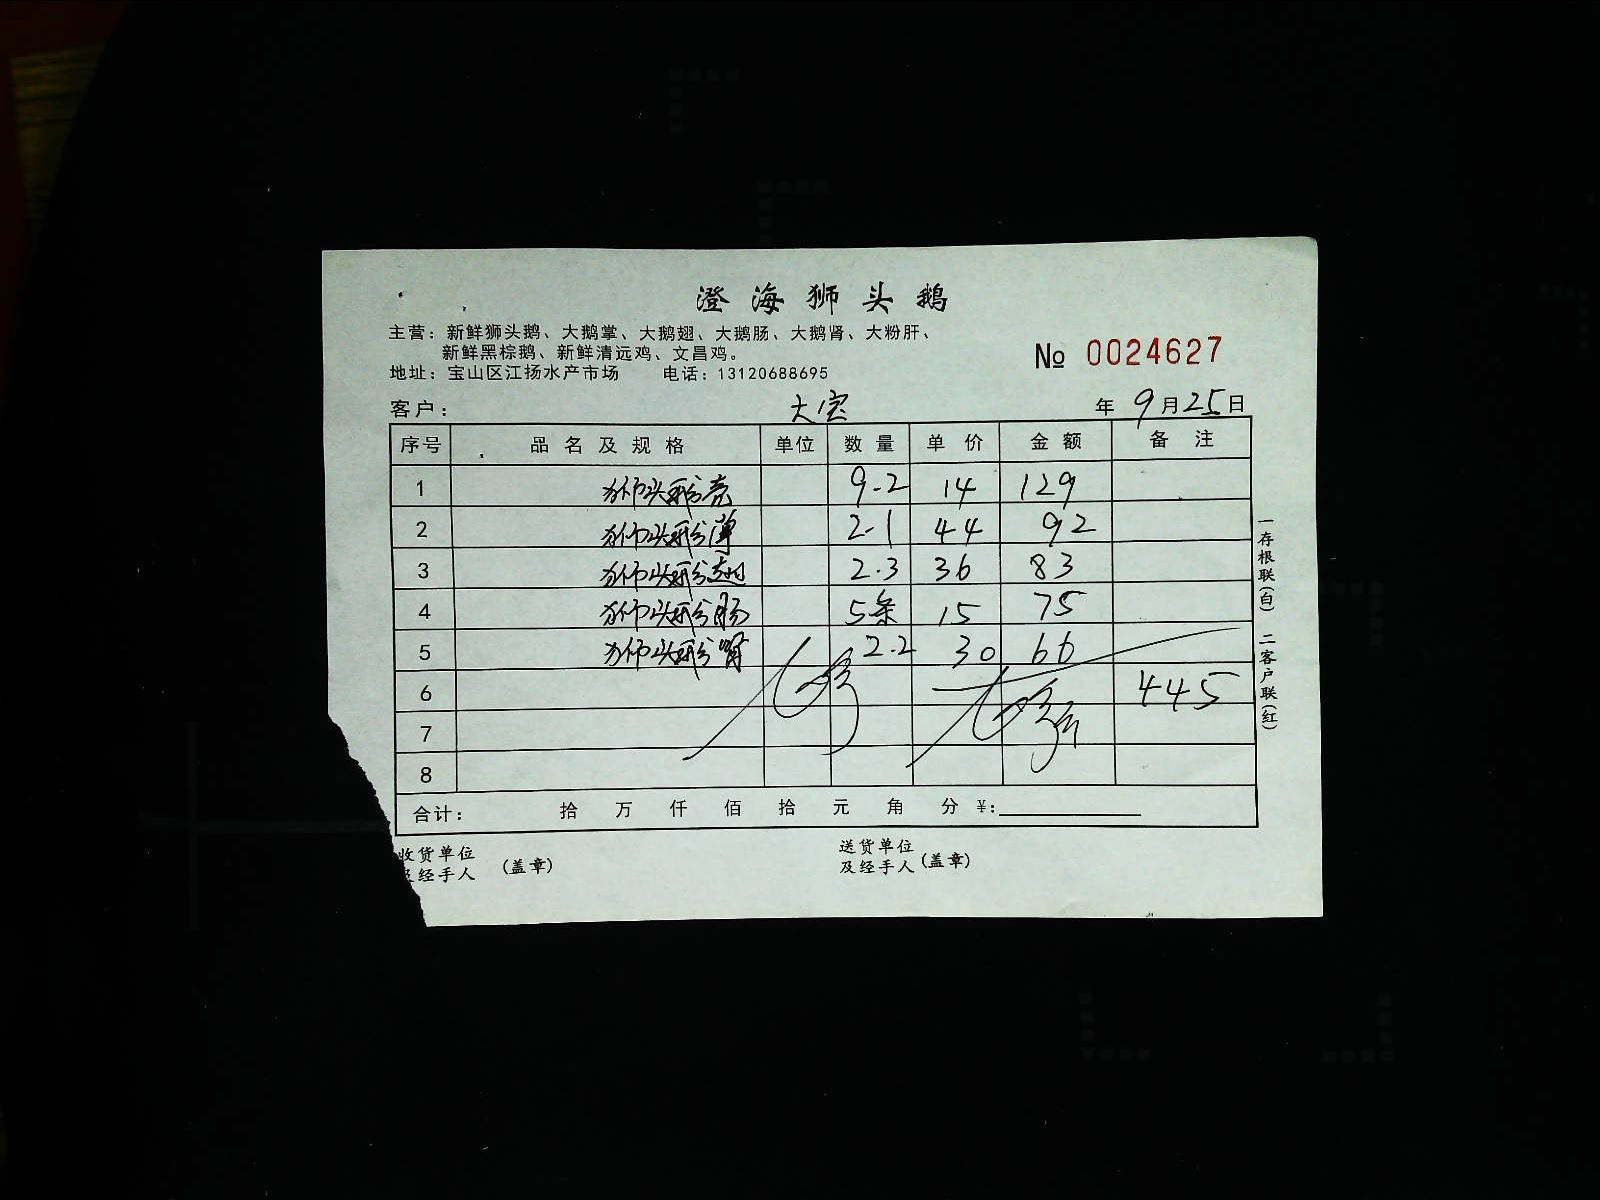 澄海狮头鹅
主营：新鲜狮头鹅、大鹅掌、大鹅翅、大鹅肠、大鹅肾、大粉肝、
新鲜黑棕鹅、新鲜清远鸡、文昌鸡。
№ 0024627
地址：宝山区江扬水产市场 电话：13120688695
客户： 大宝 年 9月25日
序号 品名及规格 单位 数量 单价 金额 备注
1 狮头鹅壳 9.2 14 129
2 狮头鹅 2.1 44 92
3 狮头鹅翅 2.3 36 83
4 狮头鹅肠 5条 15 75
5 狮头鹅肾 2.2 30 66
6 445
7
8
合计： 拾 万 仟 佰 拾 元 角 分 ¥：
收货单位
及经手人 （盖章）
送货单位
及经手人（盖章）
一存根联（白） 二客户联（红）